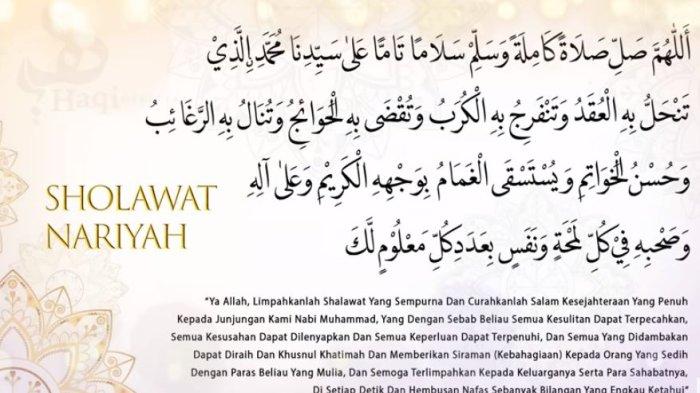 اَللّٰهُمَّ صَلِّ صَلَاةً كَامِلَةً وَسَلِّمْ سَلَامًا تَامًّا عَلٰى سَيِّدِنَا مُحَمَّدِ ِالَّذِيْ
تَنْحَلُّ بِهِ الْعُقَدُ وَتَنْفَرِجُ بِهِ الْكُرَبُ وَتُقْضَى بِهِ الْحَوَائِجُ وَتُنَالُ بِهِ الرَّغَائِبُ
وَحُسْنُ الْخَوَاتِمِ وَيُسْتَسْقَى الْغَمَامُ بِوَجْهِهِ الْكَرِيْمِ وَعَلٰى آلِهِ
وَصَحْبِهِ فِيْ كُلِّ لَمْحَةٍ وَنَفَسٍ بِعَدَدِ كُلِّ مَعْلُوْمٍ لَّكَ
SHOLAWAT
NARIYAH
"Ya Allah, Limpahkanlah Shalawat Yang Sempurna Dan Curahkanlah Salam Kesejahteraan Yang Penuh
Kepada Junjungan Kami Nabi Muhammad, Yang Dengan Sebab Beliau Semua Kesulitan Dapat Terpecahkan,
Semua Kesusahan Dapat Dilenyapkan Dan Semua Keperluan Dapat Terpenuhi, Dan Semua Yang Didambakan
Dapat Diraih Dan Khusnul Khatimah Dan Memberikan Siraman (Kebahagiaan) Kepada Orang Yang Sedih
Dengan Paras Beliau Yang Mulia, Dan Semoga Terlimpahkan Kepada Keluarganya Serta Para Sahabatnya,
Di Setiap Detik Dan Hembusan Nafas Sebanyak Bilangan Yang Engkau Ketahui"